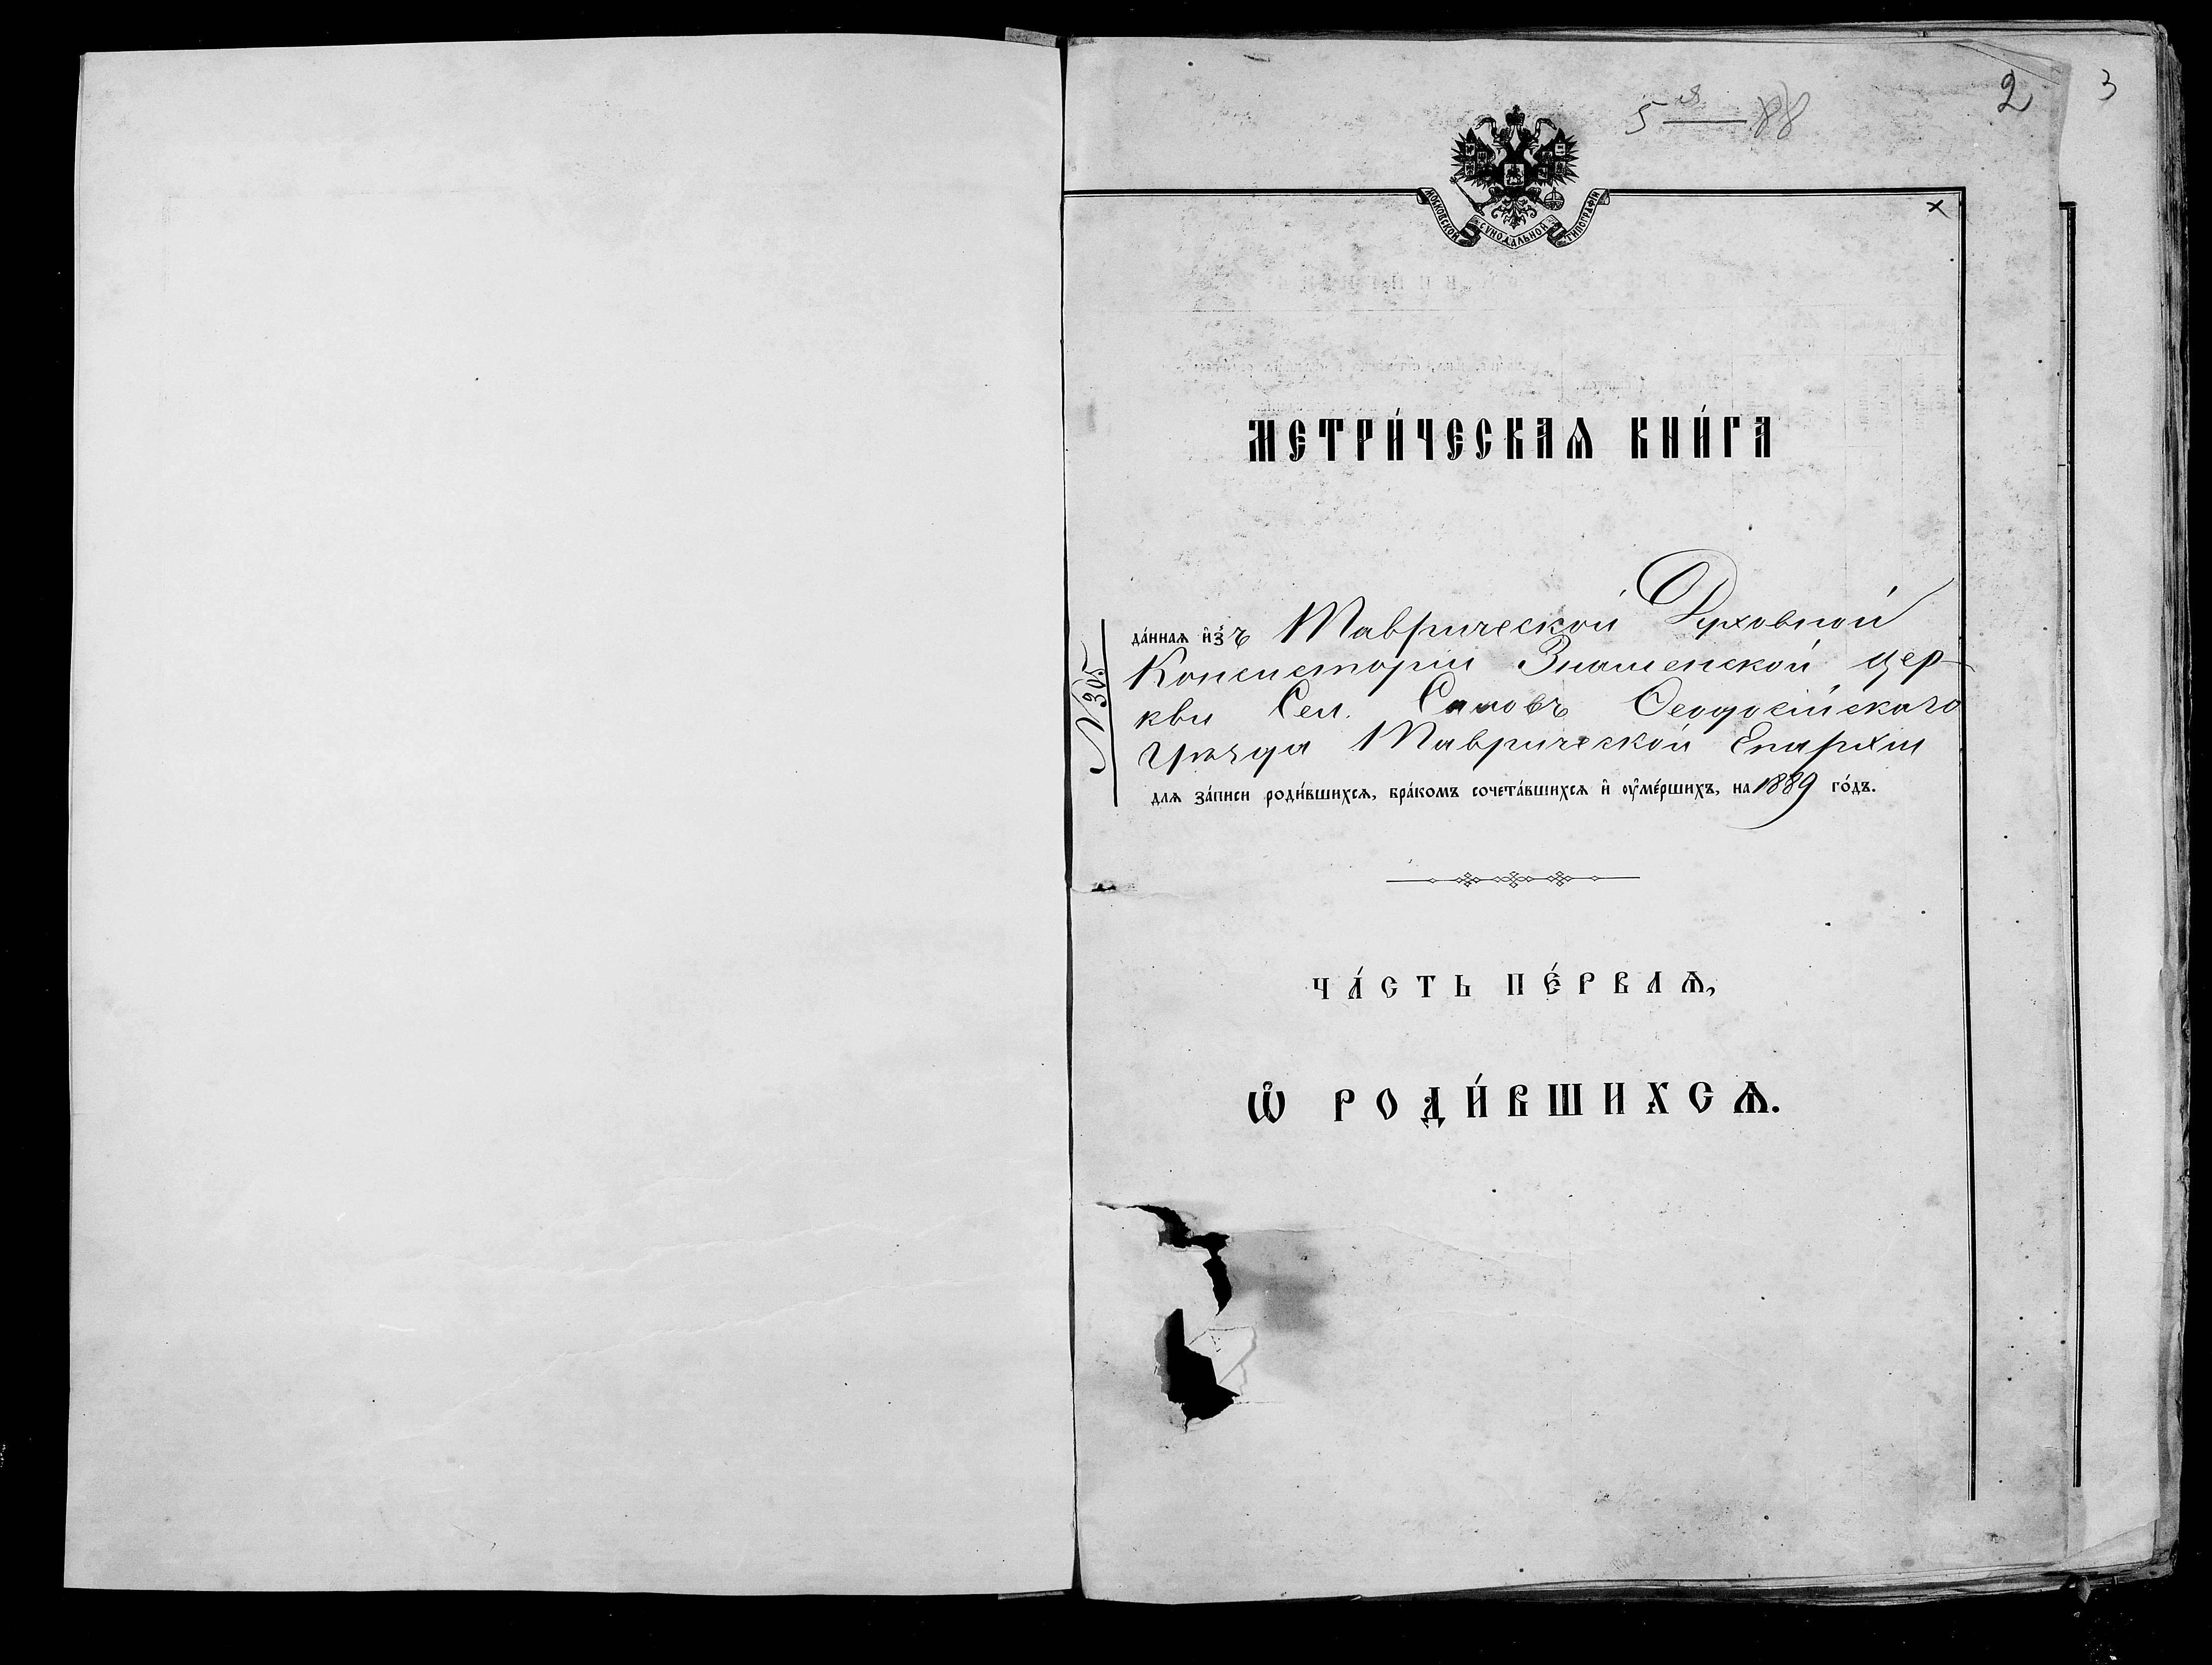 2
3
5 я 88
МОСКОВСКОЙ СѴНОДАЛЬНОЙ ТИПОГРАФІИ
х
МЕТРИ́ЧЕСКАѦ КНИ́ГА
№ 305
да́ннаѧ и҆зъ Таврической Духовной
Консисторіи Знаменской цер-
кви Сел. Ѳеодосійскаго
уѣзда Таврической Епархіи
длѧ за́писи роди́вшихсѧ, бра́комъ сочета́вшихсѧ и҆ ᲂу҆ме́ршихъ, на 1889 го́дъ.
ЧА́СТЬ ПЕ́РВАѦ,
Ѡ҆ РОДИ́ВШИХСѦ.